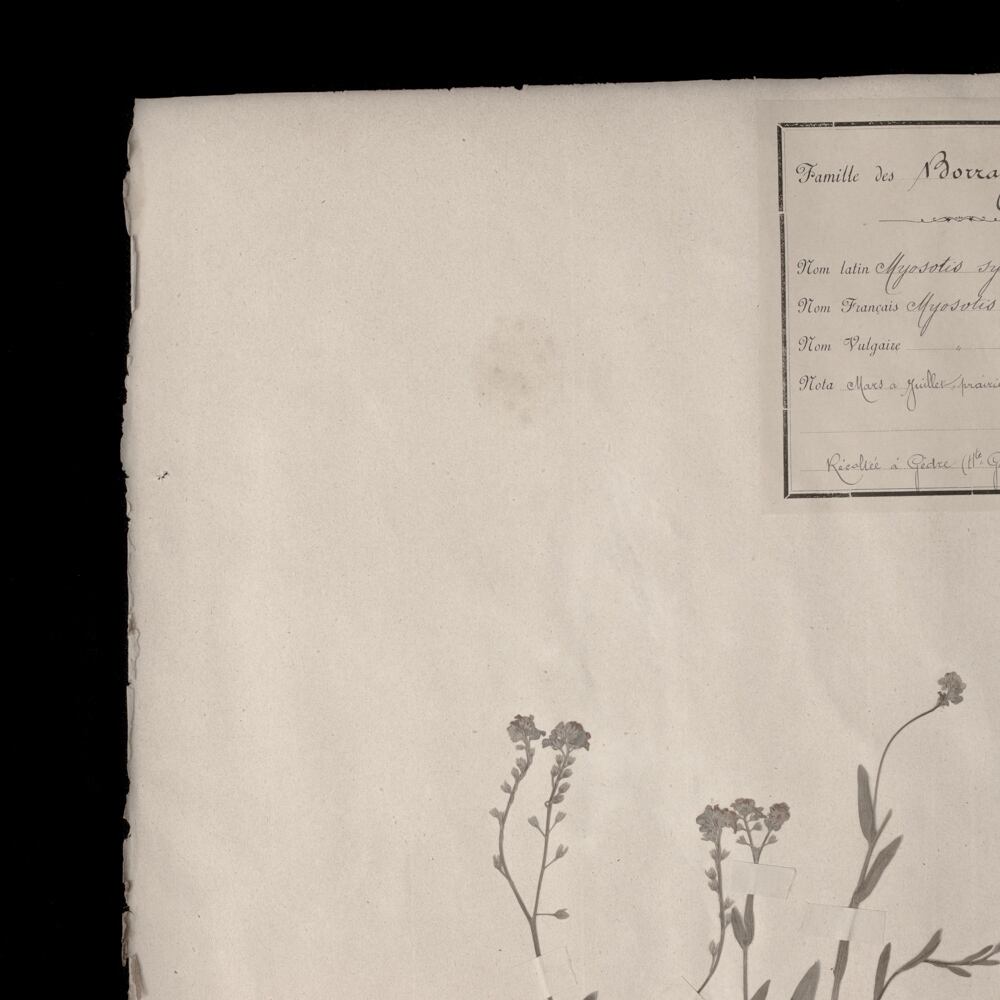 Famille des Borra
Nom latin Myosotis sy
Nom Français Myosotis
Nom Vulgaire "
Nota Mars a Juillet, prairie
Récoltée à Gèdre (Hte G